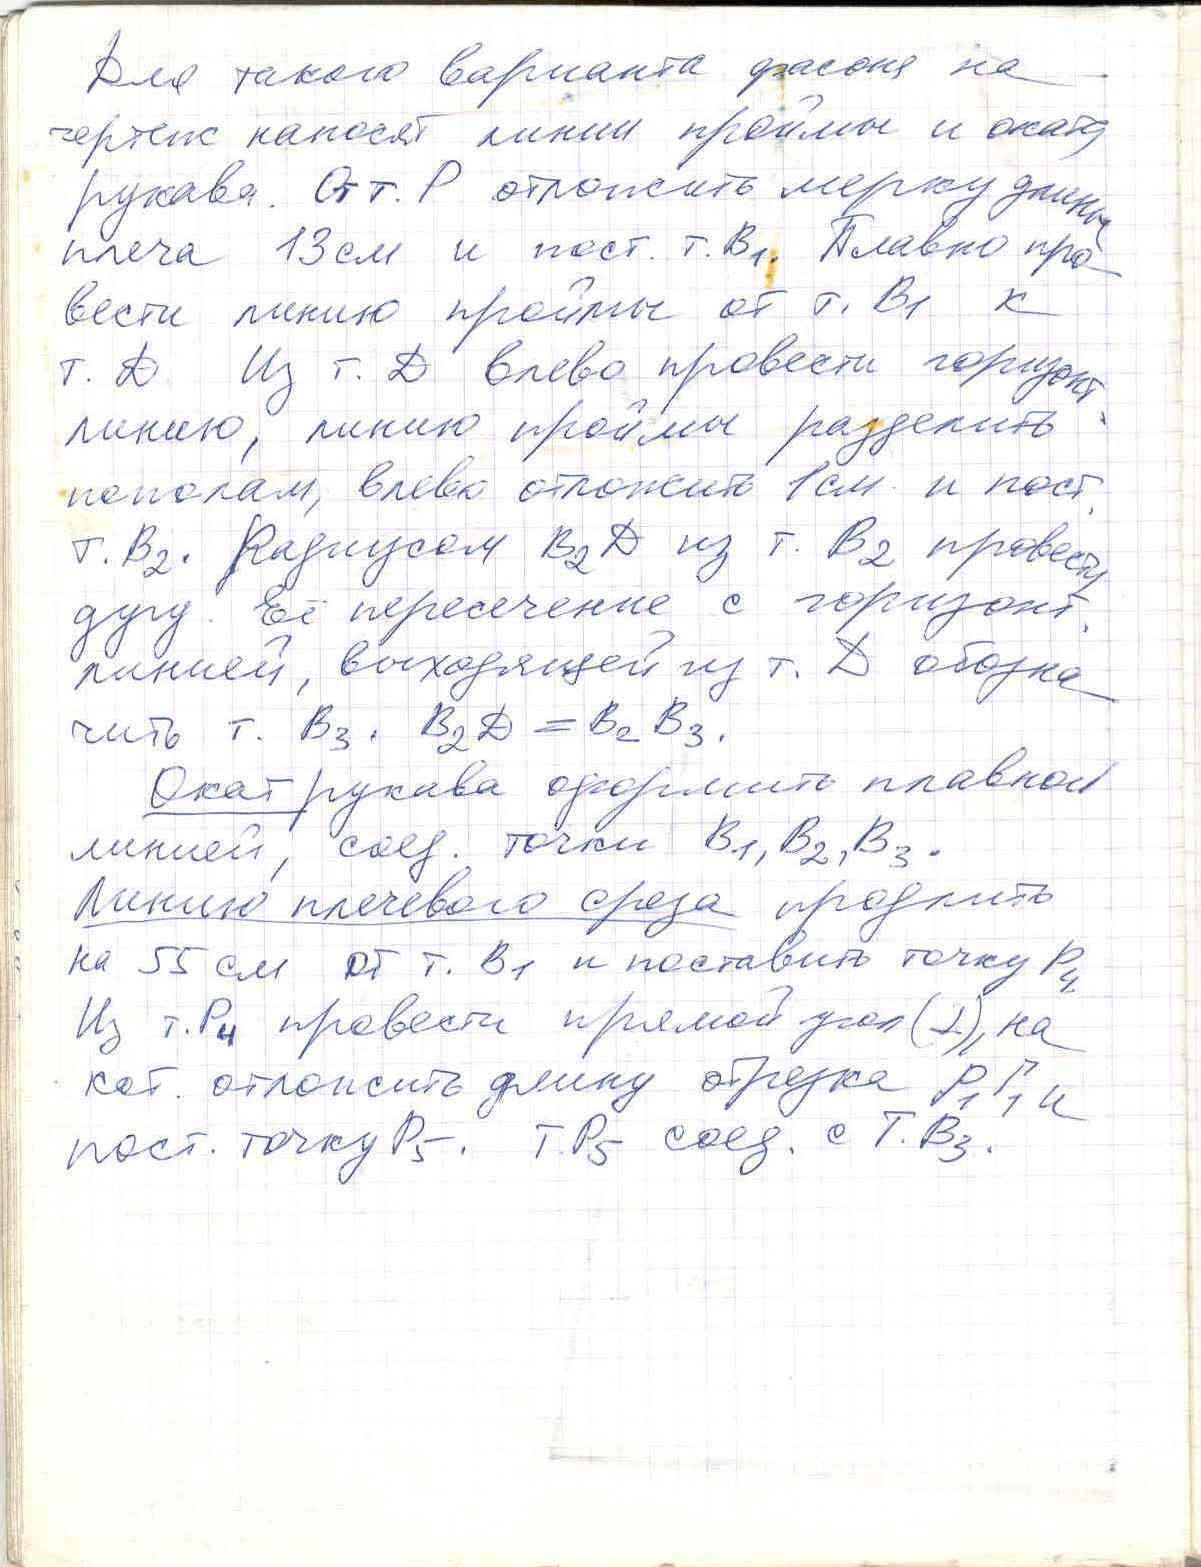 Для такого варианта фасона на
чертеж наносят линии проймы и оката
рукава. От т. Р отложить мерку длины
плеча 13 см и пост. т. В1. Плавно про
вести линию проймы от т. В1 к
т. Д Из т. Д влево провести горизонт.
линию, линию проймы разделить
пополам, влево отложить 1 см и пост.
т. В2. Радиусом В2Д из т. В2 провести
дугу. Её пересечение с горизонт.
линией, выходящей из т. Д обозна
чить т. В3. В2Д = В2В3.
Окат рукава оформить плавной
линией, соед. точки В1, В2, В3.
Линию плечевого среза продлить
на 55 см от т. В1 и поставить точку Р4
Из т. Р4 провести прямой угол (⊥), на
кот. отложить длину отрезка Р1Г1 и
пост. точку Р5. Т. Р5 соед. с Т. В3.